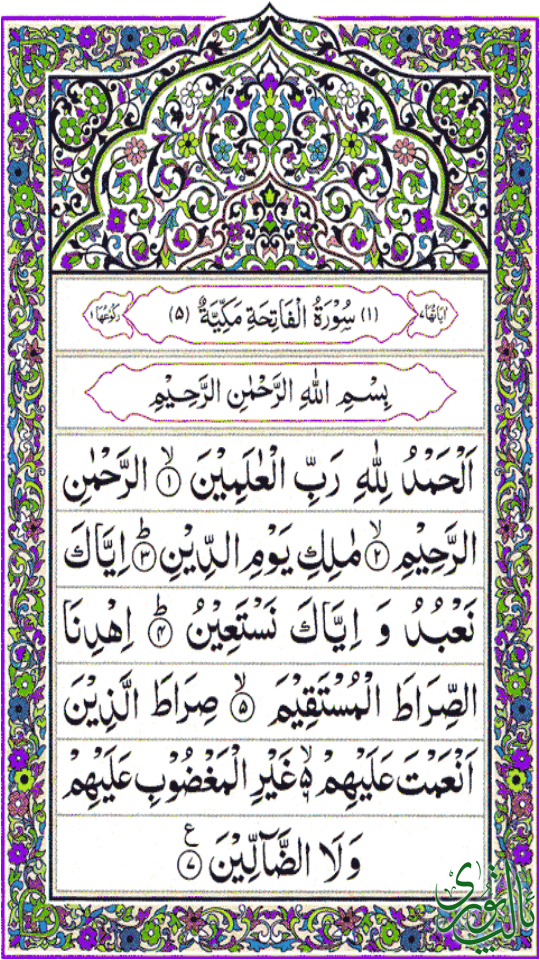 اٰیَاتُهَا ۷ (۱) سُوْرَةُ الْفَاتِحَةِ مَكِّیَّةٌ (۵) رُكُوْعُهَا ۱
بِسْمِ اللّٰهِ الرَّحْمٰنِ الرَّحِیْمِ
اَلْحَمْدُ لِلّٰهِ رَبِّ الْعٰلَمِیْنَ ۙ‏۱ الرَّحْمٰنِ
الرَّحِیْمِ ۙ‏۲ مٰلِكِ یَوْمِ الدِّیْنِ ؕ‏۳ اِیَّاكَ
نَعْبُدُ وَ اِیَّاكَ نَسْتَعِیْنُ ؕ‏۴ اِهْدِنَا
الصِّرَاطَ الْمُسْتَقِیْمَ ۙ‏۵ صِرَاطَ الَّذِیْنَ
اَنْعَمْتَ عَلَیْهِمْ ۙ۬‏۶ غَیْرِ الْمَغْضُوْبِ عَلَیْهِمْ
وَلَا الضَّآلِّیْنَ ع ۷